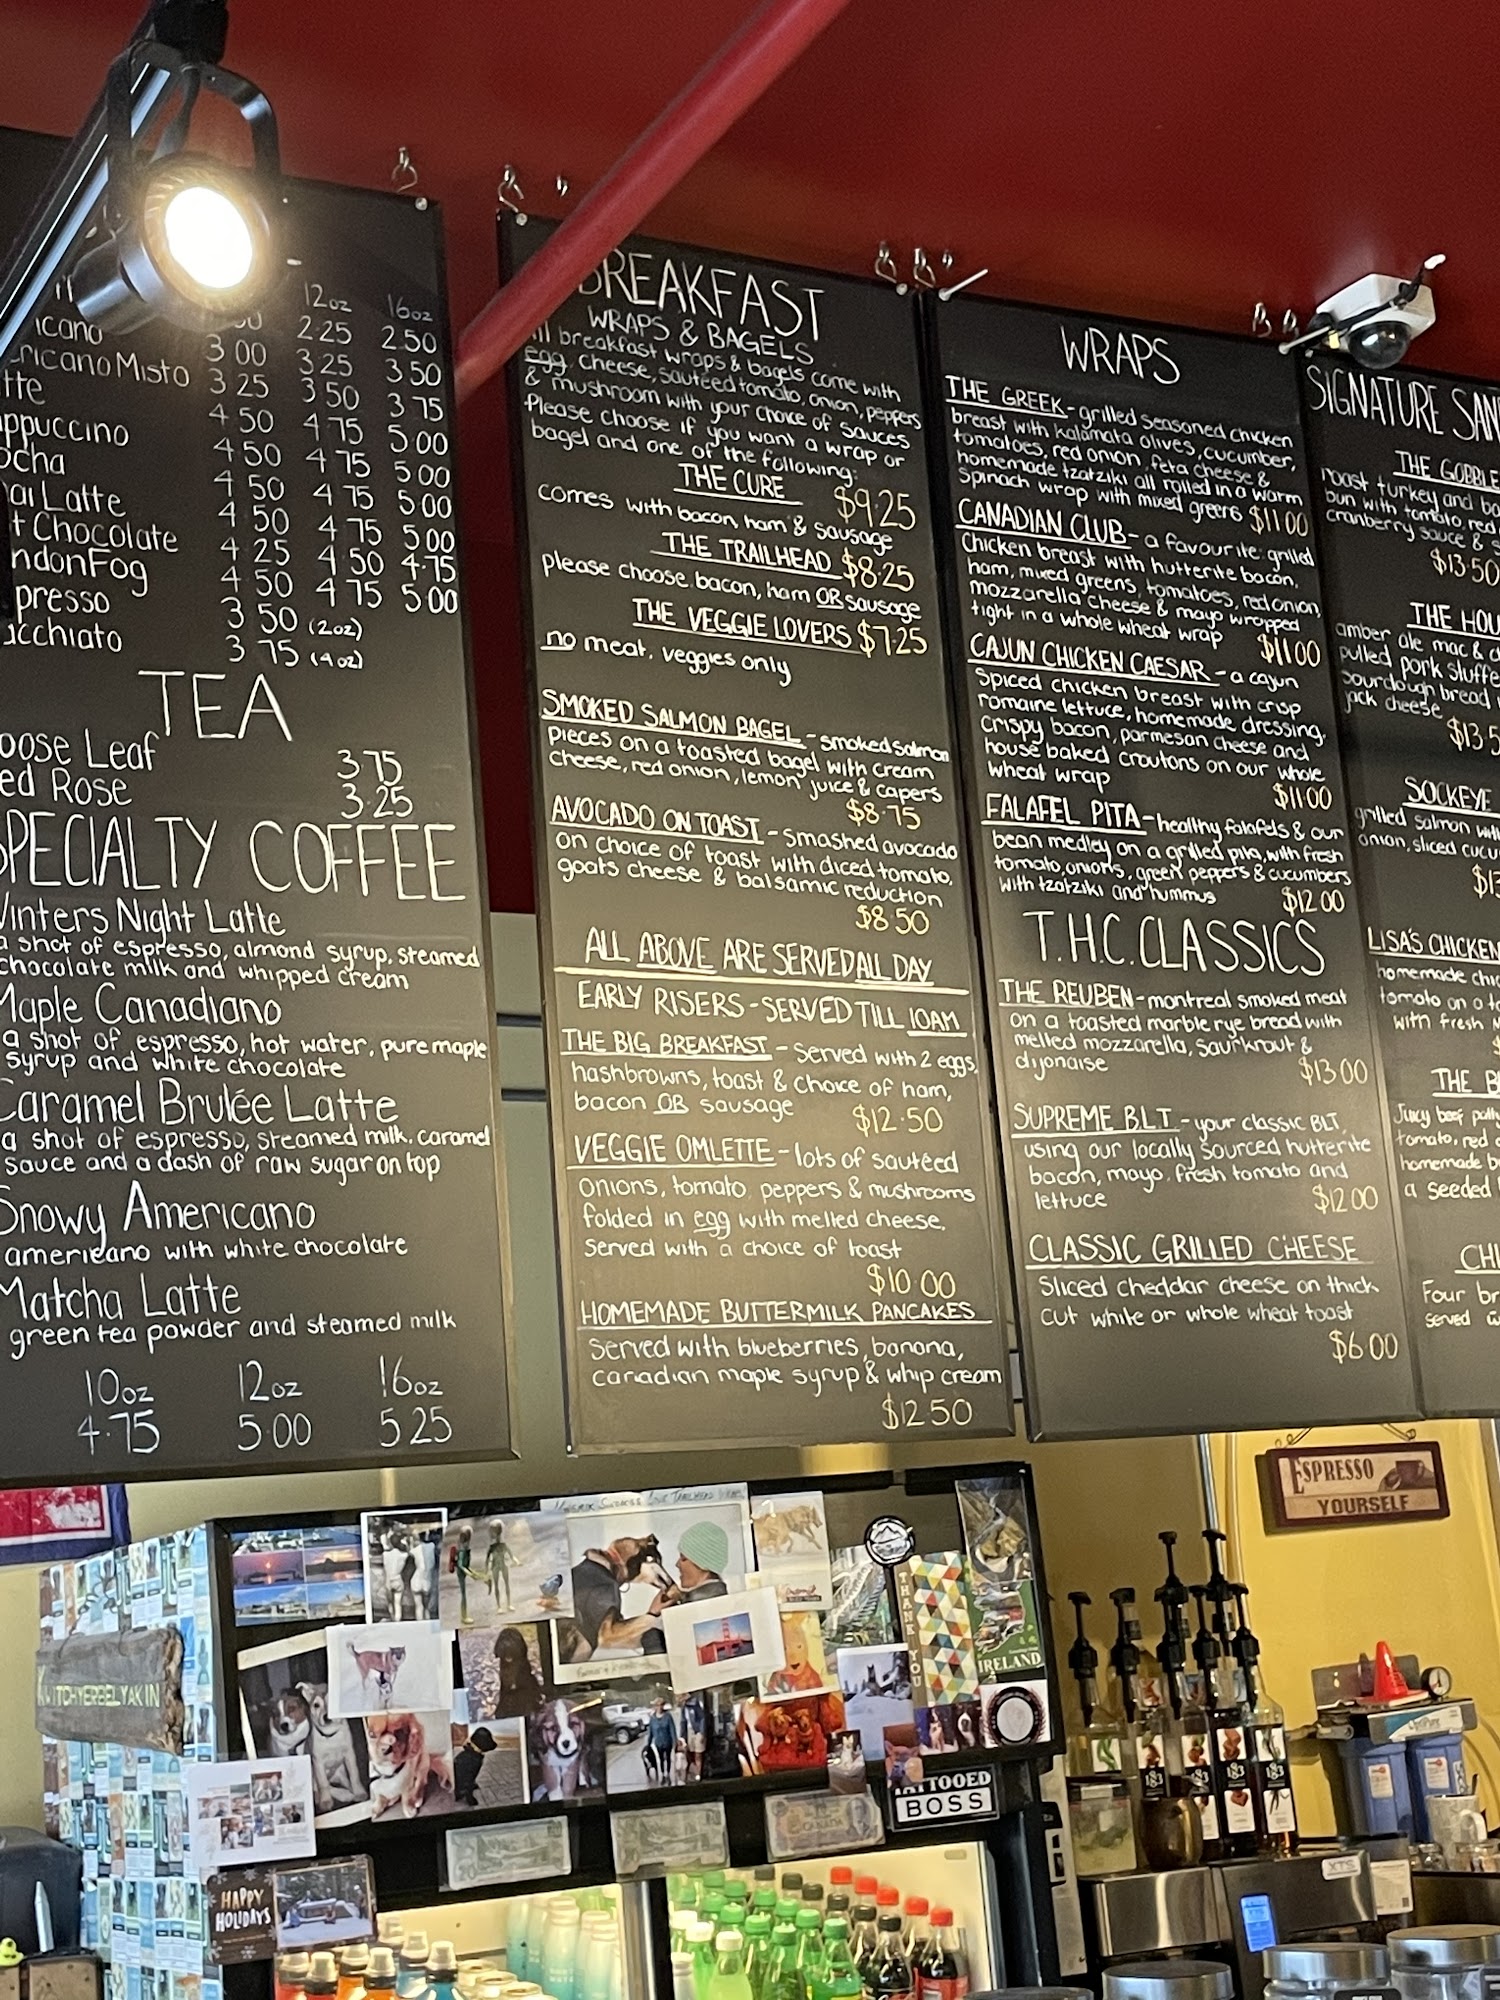 12oz 16oz
2.25 2.50
3.00 3.25 3.50
Misto 3.25 3.50 3.75
4.50 4.75 5.00
4.50 4.75 5.00
Latte 4.50 4.75 5.00
Chocolate 4.50 4.75 5.00
Fog 4.25 4.50 4.75
4.50 4.75 5.00
3.50 (2oz)
3.75 (4oz)
TEA
Leaf 3.75
Rose 3.25
SPECIALTY COFFEE
Winters Night Latte
a shot of espresso, almond syrup, steamed
chocolate milk and whipped cream
Maple Canadiano
a shot of espresso, hot water, pure maple
syrup and white chocolate
Caramel Brulée Latte
a shot of espresso, steamed milk, caramel
sauce and a dash of raw sugar on top
Snowy Americano
americano with white chocolate
Matcha Latte
green tea powder and steamed milk
10oz 12oz 16oz
4.75 5.00 5.25
BREAKFAST
WRAPS & BAGELS
All breakfast wraps & bagels come with
egg, cheese, sautéed tomato, onion, peppers
& mushroom with your choice of sauces
Please choose if you want a wrap or
bagel and one of the following:
THE CURE $9.25
comes with bacon, ham & sausage
THE TRAILHEAD $8.25
please choose bacon, ham OR sausage
THE VEGGIE LOVERS $7.25
no meat, veggies only
SMOKED SALMON BAGEL - smoked salmon
pieces on a toasted bagel with cream
cheese, red onion, lemon juice & capers
$8.75
AVOCADO ON TOAST - smashed avocado
on choice of toast with diced tomato,
goats cheese & balsamic reduction
$8.50
ALL ABOVE ARE SERVED ALL DAY
EARLY RISERS - SERVED TILL 10AM
THE BIG BREAKFAST - served with 2 eggs,
hashbrowns, toast & choice of ham,
bacon OR sausage $12.50
VEGGIE OMLETTE - lots of sautéed
onions, tomato, peppers & mushrooms
folded in egg with melled cheese.
Served with a choice of toast
$10.00
HOMEMADE BUTTERMILK PANCAKES
served with blueberries, banana,
canadian maple syrup & whip cream
$12.50
WRAPS
THE GREEK - grilled seasoned chicken
breast with kalamata olives, cucumber,
tomatoes, red onion, feta cheese &
homemade tzatziki all rolled in a warm
spinach wrap with mixed greens $11.00
CANADIAN CLUB - a favourite: grilled
chicken breast with hutterite bacon,
ham, mixed greens, tomatoes, red onion,
mozzarella cheese & mayo wrapped
tight in a whole wheat wrap $11.00
CAJUN CHICKEN CAESAR - a cajun
spiced chicken breast with crisp
romaine lettuce, homemade dressing,
crispy bacon, parmesan cheese and
house baked croutons on our whole
wheat wrap $11.00
FALAFEL PITA - healthy falafels & our
bean medley on a grilled pita, with fresh
tomato, onions, green peppers & cucumbers
with tzatziki and hummus $12.00
T.H.C. CLASSICS
THE REUBEN - montreal smoked meat
on a toasted marble rye bread with
melled mozzarella, saurkraut &
dijonaise $13.00
SUPREME B.L.T - your classic BLT,
using our locally sourced hutterite
bacon, mayo, fresh tomato and
lettuce $12.00
CLASSIC GRILLED CHEESE
Sliced cheddar cheese on thick
cut white or whole wheat toast
$6.00
SIGNATURE
THE
roast turkey and
bun with tomato, red
cranberry sauce &
$13.50
THE
amber ale mac &
pulled pork
sourdough bread
jack cheese
SOCKEYE
grilled salmon
onion, sliced
LISA'S CHICKEN
homemade
tomato on a
with fresh
THE
Juicy beef
tomato, red
homemade
a seeded
Four
served
ESPRESSO
YOURSELF
THANK YOU
IRELAND
TATTOOED
BOSS
CANADA
HAPPY
HOLIDAYS
183 183 183
XTS